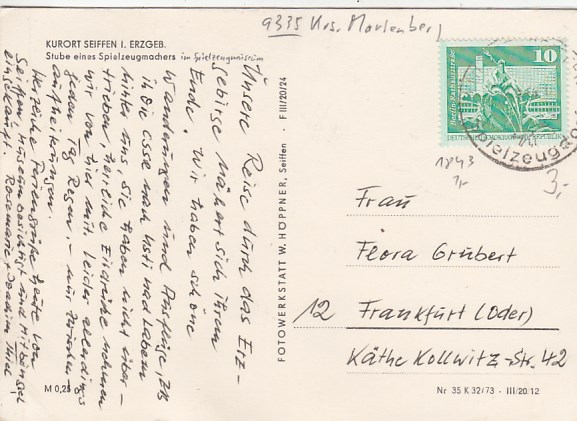 9335 Krs. Marienberg
KURORT SEIFFEN I. ERZGEB.
Stube eines Spielzeugmachers im Spielzeugmuseum
Unsere Reise durch das Erz-
gebirge nähert sich ihrem
Ende. Wir haben schöne
Wanderungen und Ausflüge, z.B.
in die ČSSR nach Usti nad Labem
hinter uns, sie haben nicht über-
trieben, herrliche Eindrücke nehmen
wir von hier mit. Leider allerdings
jeden Tag Regen, - nur zwischen
aufheiterungen.
Herzliche Feriengrüße heute von
Seiffen, Museum besichtigt und
eingekauft. Rosemarie + Joachim
M 0,25
FOTOWERKSTATT W. HÖPPNER, Seiffen · F III/20/24
10
Berlin · Rathausstraße
DEUTSCHE DEMOKRATISCHE REPUBLIK
Spielzeugdo
1843
1,-
3,-
Frau
Flora Grubert
12 Frankfurt (Oder)
Käthe Kollwitz-Str. 42
Nr 35 K 32/73 - III/20/12